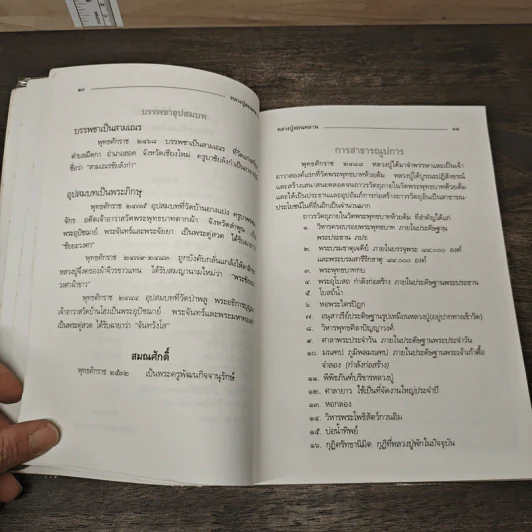 ๑๐
หลวงปู่สอนหลาน
บรรพชาอุปสมบท
บรรพชาเป็นสามเณร
พุทธศักราช ๒๔๖๘ บรรพชาเป็นสามเณร
ตำบลมืดกา อำเภอฮอด จังหวัดเชียงใหม่
ชื่อว่า "สามเณรชัยลังก๋า"
อุปสมบทเป็นพระภิกษุ
พุทธศักราช อุปสมบทที่วัดบ้านยางแปง
จักร อดีตเจ้าอาวาสวัดพระพุทธบาทตากผ้า จังหวัดลำพูน
พระอุปัชฌาย์ พระจันทร์และพระจัยยา เป็นพระคู่สวด
"ชัยยะวงศา"
พุทธศักราช ถูกบังคับกลั่นแกล้งให้ลาสิกขา
หลวงปู่จึงครองผ้าจีวรขาวแทน ได้รับสมญานามใหม่ว่า
วงศาผ้าขาว"
พุทธศักราช ๒๔๘๔ อุปสมบทที่วัดป่าพลู
เจ้าอาวาสวัดบ้านโฮ่งเป็นพระอุปัชฌาย์
เป็นพระคู่สวด ได้รับฉายาว่า "จันทวังโส"
สมณศักดิ์
พุทธศักราช ๒๕๓๒ เป็นพระครูพัฒนกิจจานุรักษ์
หลวงปู่สอนหลาน
๑๑
การสาธารณูปการ
พุทธศักราช ๒๔๘๘ หลวงปู่ได้มาจำพรรษาและเป็นเจ้า
อาวาสองค์แรกที่วัดพระพุทธบาทห้วยต้ม หลวงปู่ได้บูรณะปฏิสังขรณ์
และสร้างเสนาสนะตลอดจนถาวรวัตถุภายในวัดพระพุทธบาทห้วยต้ม
และได้เป็นประธานและอุปถัมภ์การก่อสร้างถาวรวัตถุอันเป็นสาธารณ-
ประโยชน์ในที่อื่นอีกเป็นจำนวนมาก
ถาวรวัตถุภายในวัดพระพุทธบาทห้วยต้ม ที่สำคัญได้แก่
๑. วิหารครอบรอยพระพุทธบาท ภายในประดิษฐาน
พระประธาน ภปร.
๒. พระบรมธาตุเจดีย์ ภายในบรรจุพระ ๘๔,๐๐๐ องค์
และพระบรมสารีริกธาตุ ๘๔,๐๐๐ องค์
๓. พระพุทธบาทกบ
๔. พระอุโบสถ กำลังก่อสร้าง ภายในประดิษฐานพระประธาน
๕. โบสถ์น้ำ
๖. หอพระไตรปิฎก
๗. อนุสาวรีย์ประดิษฐานรูปเหมือนหลวงปู่(อยู่ปากทางเข้าวัด)
๘. วิหารพุทธศิลาปัญญาวงศ์
๙. ศาลาพระประจำวัน ภายในประดิษฐานพระประจำวัน
๑๐. มณฑป ภูมิพลมณฑป ภายในประดิษฐานพระเจ้าเก้าตื้อ
จำลอง (กำลังก่อสร้าง)
๑๑. พิพิธภัณฑ์บริขารหลวงปู่
๑๒. ศาลายาว ใช้เป็นที่จัดงานใหญ่ประจำปี
๑๓. หอกลอง
๑๔. วิหารพระโพธิสัตว์กวนอิม
๑๕. บ่อน้ำทิพย์
๑๖. กุฏิศรัทธานิมิต กุฏิที่หลวงปู่พักในปัจจุบัน